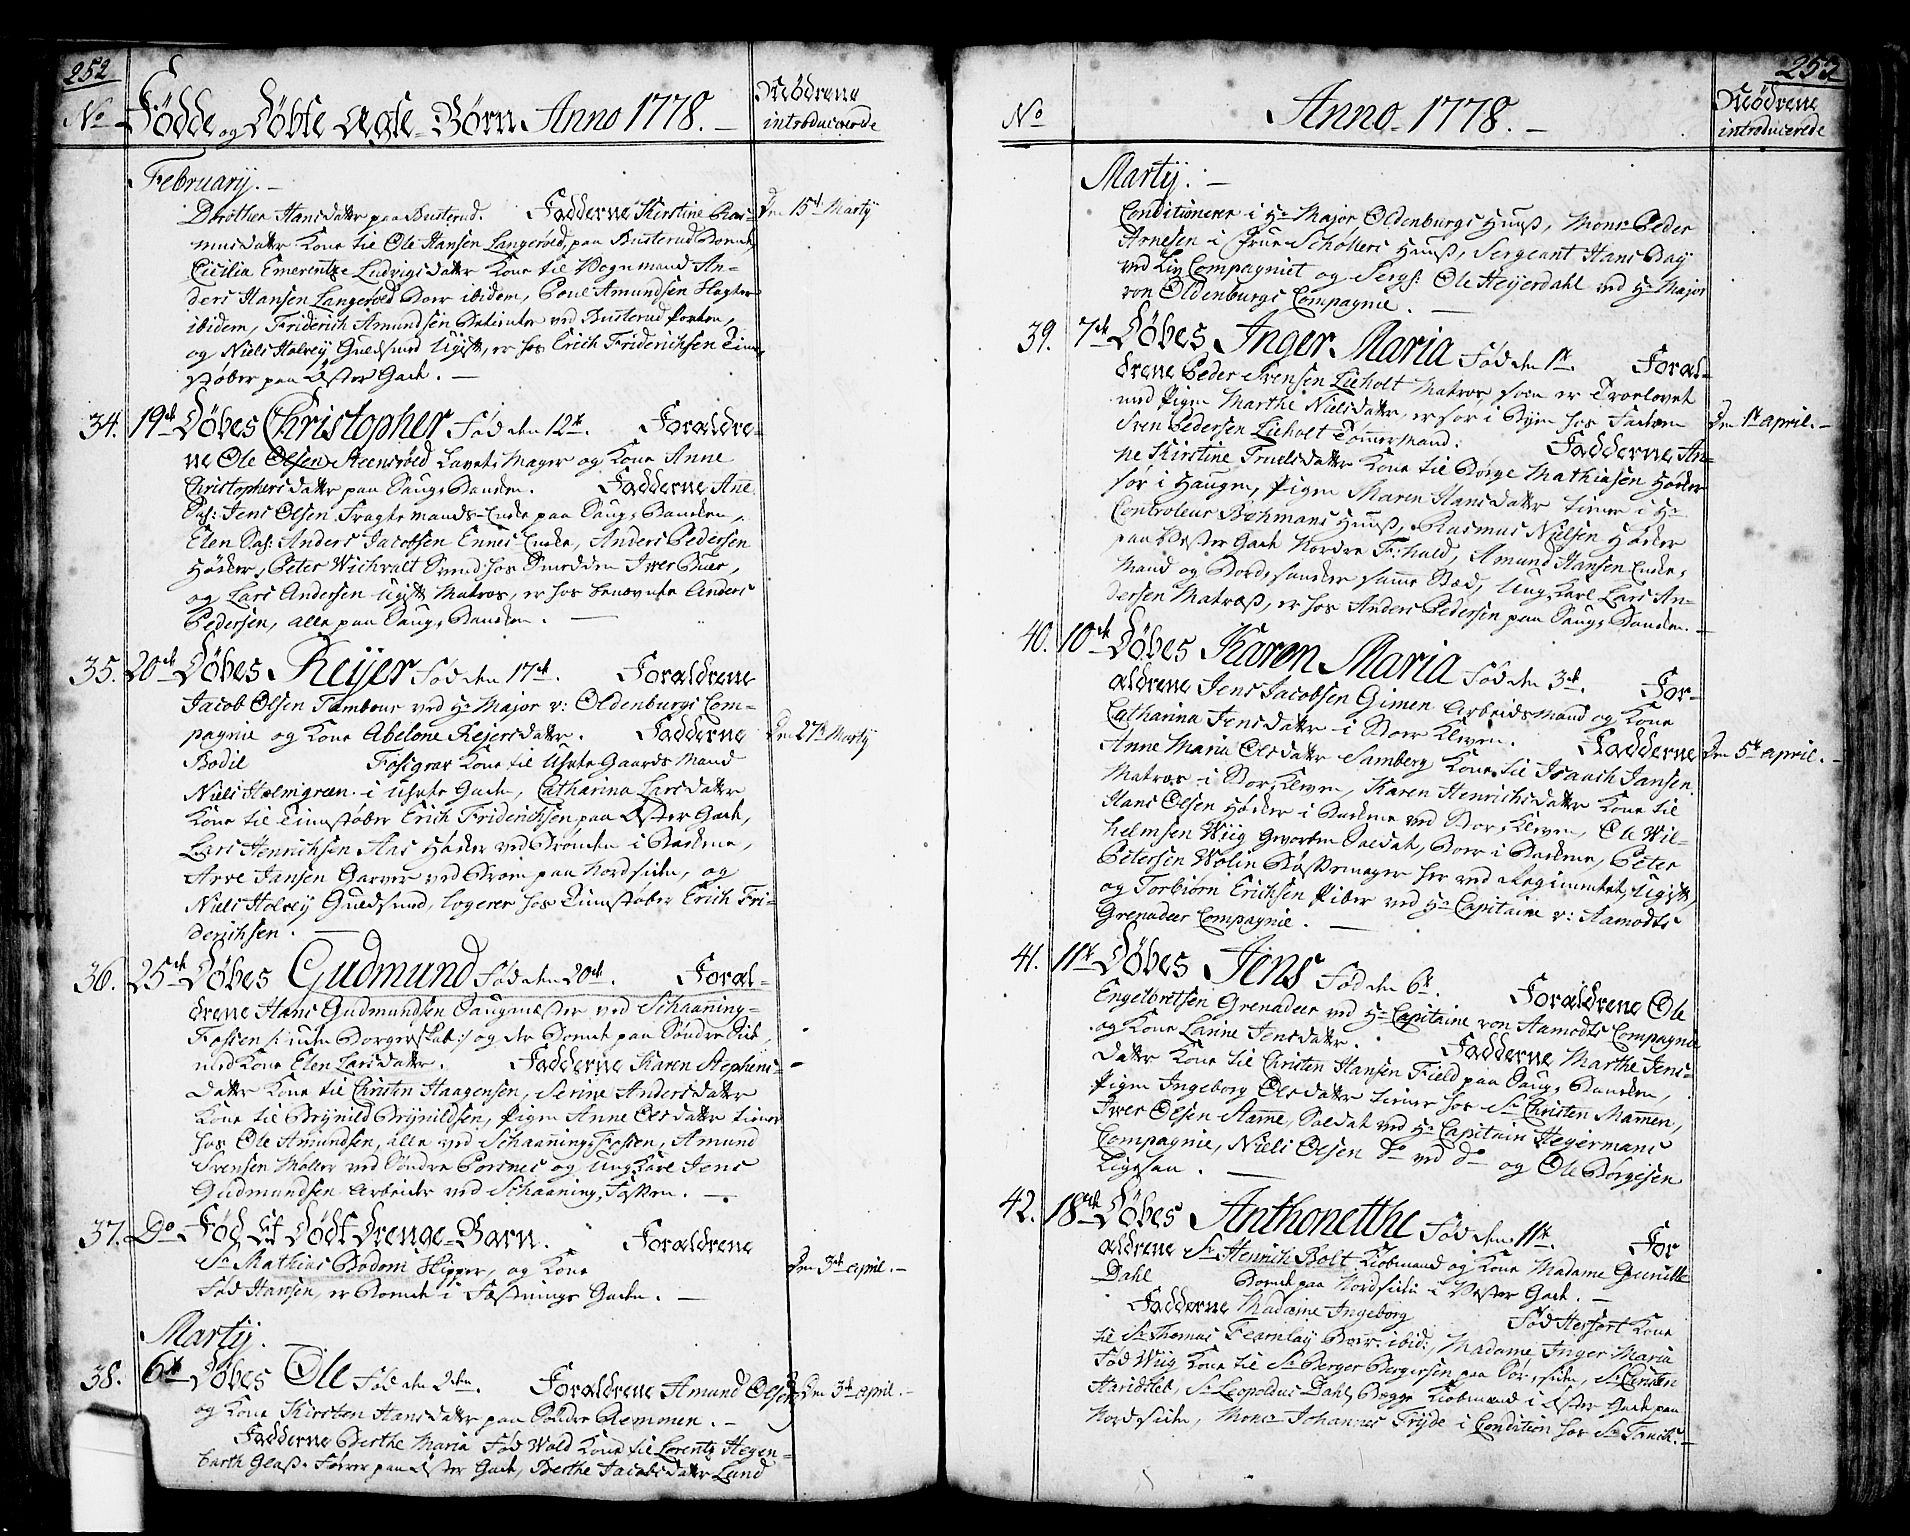 252
No Fødde og Døbte Ægte-Børn Anno 1778. -
Mødrene
introducerede
February. -
Dorothea Hansdatter paa Busterud. Fadderne Kirstine Ras-
musdatter Kone til Ole Hansen Langerød, paa Busterud Boende,
Cicilia Emerentze Ludvigsdatter Kone til Vognmand An-
ders Hansen Langerød Boer ibidem, Poul Amundsen Slagter
ibidem, Friderich Amundsen Betiente ved Busterud Porten,
og Niels Holvey Guldsmed Ugift, er hos Erich Friderichsen Tinn-
støber paa Øster Gade. -
Den 15de Martÿ
34. 19de Døbes Christopher Fød den 12te. Forældre-
ne Ole Olsen Steensrød Lavets Mager og Kone Anne
Christophersdatter paa Saugs Banken. Fadderne Ane
Sal: Jens Olsen Fragtemands-Enke paa Saugs Banken,
Elen Sal: Anders Jacobsen Ennes Enke, Anders Pedersen
Høker, Peter Wichvalt Svend hos Smedden Iver Buer,
og Lars Andersen Ugift Matros, er hos benævnte Anders
Pedersen, alle paa Saugs Banken. -
35. 20de Døbes Reÿer Fød den 17de. Forældrene
Jacob Olsen Tambour ved Hr Major v: Oldenburgs Com-
pagnie og Kone Abelone Rejersdatter. Fadderne
Bodil Fosigrav Kone til Uhrte Gaards Mand
Niels Holmgreen i Uhrte Gade, Catharina Larsdatter
Kone til Tinnstøber Erich Friderichsen paa Øster Gade,
Lars Henrichsen Aas Høker ved Brønden i Bakkene,
Arve Jansen Garver ved Broen paa Nordsiden, og
Niels Holvey Guldsmed, logerer hos Tinnstøber Erich Fri-
derichsen. -
Den 27de Martÿ
36. 25de Døbes Gudmund Fød den 20de. Foræl-
drene Hans Gudmundsen Saugmæster ved Schaaning-
Fossen /: uden Borgerskab:/ og der Boende paa Søndre Side,
med Kone Elen Larsdatter. Fadderne Karen Stephens-
datter Kone til Christen Haagensen, Serine Andersdatter
Kone til Brÿnild Brÿnildsen, Pigen Anne Olsdatter tiener
hos Ole Amundsen, alle ved Schaaning-Fossen, Amund
Svensen Møller ved Søndre Porsnes og Ung Karl Jens
Gudmundsen Arbeider ved Schaaning-Fossen. -
37. Do Fød Et Dødt Drenge-Barn. Forældrene
Sr Mathias Bodom Skipper, og Kone
Fød Hansen, er Boende i Fæstnings Gaden. -
Den 3de april. -
Martÿ.
38. 6te Døbes Ole Fød den 2den. Forældrene Amund Olsen
og Kone Kirsten Hansdatter paa Søndre Remmen. -
Fadderne Berthe Maria Fød Wold Kone til Lorentz Hegen-
barth Glass-Fører paa Øster Gade, Berthe Jacobsdatter Lund
Den 3de april. -
253
No Anno 1778. -
Mødrene
introducerede
Martÿ. -
Conditionerer i Hr Major Oldenburgs Huus, Monsr Peder
Arnesen i Frue Schøllers Huus, Sergeant Hans Baÿ
ved Liv Compagniet og Sergt Ole Heÿerdahl ved Hr Major
von Oldenburgs Compagnie. -
39. 7de Døbes Inger Maria Fød den 1te. Foræl-
drene Peder Svensen Lieholt Matros, som er Trolovet
med Pigen Marthe Nielsdatter, er her i Byen hos Faderen
Sven Pedersen Lieholt Tømmermand. Fadderne An-
ne Kirstine Truelsdatter Kone til Børge Mathiasen Høker
her i Haugen, Pigen Maren Hansdatter tiener i Hr
Controleur Bøhmans Huus, Rasmus Nielsen Høker
paa Wester Gade Nordre Fr:hald, Amund Hansen Enke-
Mand og Bordskander samme Sted, Ung Karl Lars An-
dersen Matross, er hos Anders Pedersen paa Saugs Banken. -
Den 1te april. -
40. 10de Døbes Karen Maria Fød den 3de. For-
ældrene Jens Jacobsen Gimen Arbeidsmand og Kone
Catharina Jensdatter i Stor Kleven. Fadderne
Anne Maria Olsdatter Samberg Kone til Isaach Jansen
Matros i Stor Kleven, Karen Henrichsdatter Kone til
Hans Olsen Høker i Bakkene ved Stor Kleven, Ole Wil-
helmsen Wiig Gevorben Soldat, Boer i Bakkene, Peter
Petersen Wolin Bøssemager her ved Regimentet, Ugift,
og Torbiørn Erichsen Piber ved Hr Capitaine v: Aamodts
Grenadeer Compagnie. -
Den 5te april. -
41. 11te Døbes Jens Fød den 6te. Forældrene Ole
Engelbretsen Grenadeer ved Hr Capitaine von Aamodts Compagnie
og Kone Larine Jensdatter. Fadderne Marthe Jens-
datter Kone til Christen Hansen Field paa Saugs Banken,
Pigen Ingeborg Olsdatter tiener hos Sr Christen Mamen,
Iver Olsen Stamme, Soldat ved Hr Capitain Hegermans
Compagnie, Niels Olsen Do ved Do og Ole Børgesen
Ligesaa. -
42. 18de Døbes Anthonetthe Fød den 11te. For
ældrene Sr Henrich Bolt Kiøbmand og Kone Madame Gunild
Dahl Boende paa Nordsiden i Wester Gade. -
Fadderne Madame Ingeborg Fød Herfort Kone
til Sr Thomas Fearnlay Boer ibid:, Madame Inger Maria
Fød Wiig Kone til Sr Berger Bergersen paa Sør-siden, Sr Christen
Harildstad, Sr Leopoldus Dahl, Begge Kiøbmænd i Øster Gade paa
Nordsiden, Monsr Johannes Frÿde i Condition hos Sr Tanch. -